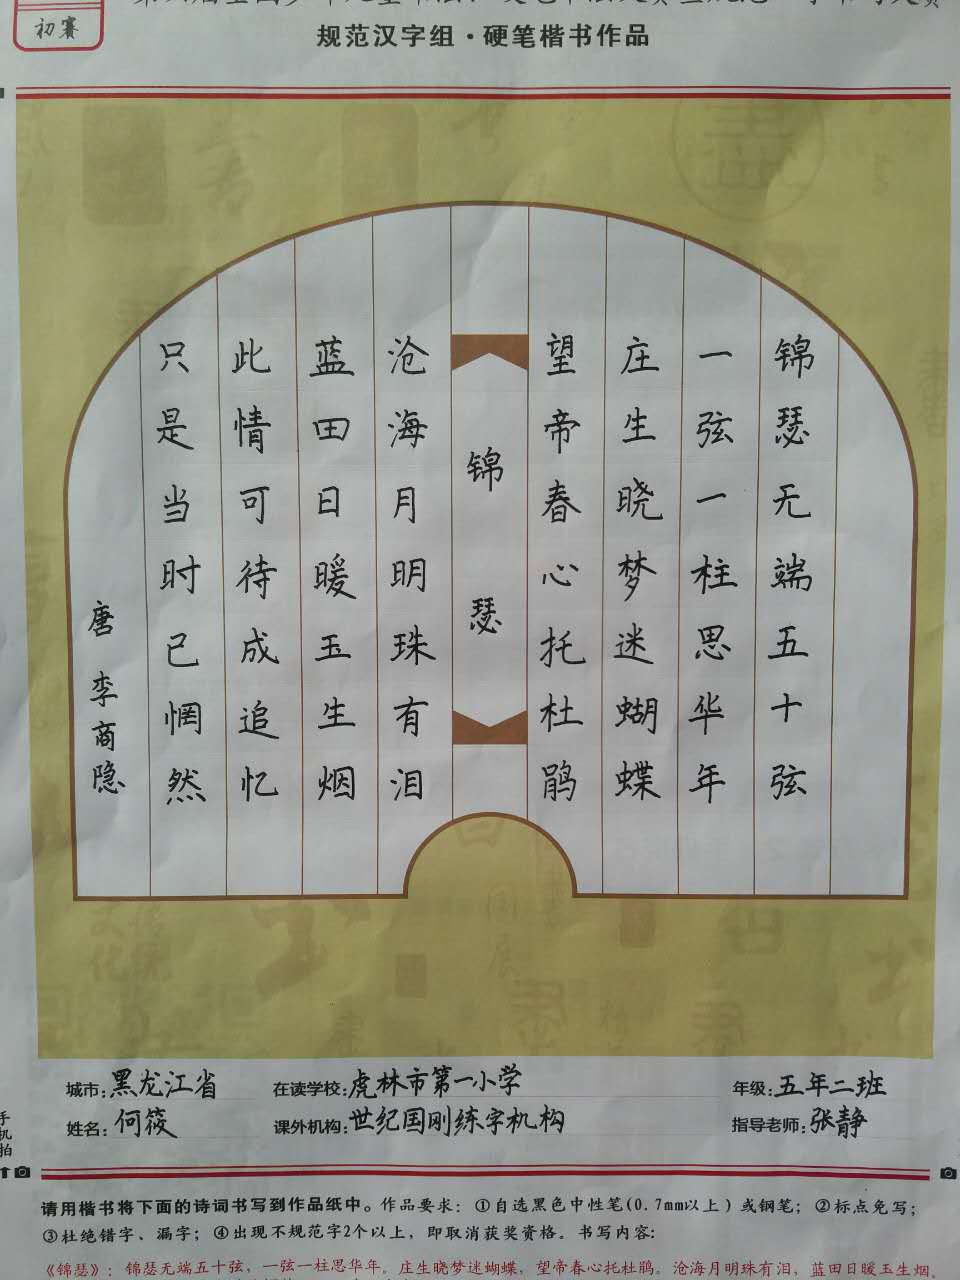 初赛
规范汉字组·硬笔楷书作品
锦瑟无端五十弦
一弦一柱思华年
庄生晓梦迷蝴蝶
望帝春心托杜鹃
锦瑟
沧海月明珠有泪
蓝田日暖玉生烟
此情可待成追忆
只是当时已惘然
唐 李商隐
城市:黑龙江省 在读学校:虎林市第一小学 年级:五年二班
姓名:何筱 课外机构:世纪国刚练字机构 指导老师:张静
手机拍
请用楷书将下面的诗词书写到作品纸中。作品要求:①自选黑色中性笔(0.7mm以上)或钢笔;②标点免写;
③杜绝错字、漏字;④出现不规范字2个以上,即取消获奖资格。书写内容:
《锦瑟》:锦瑟无端五十弦,一弦一柱思华年。庄生晓梦迷蝴蝶,望帝春心托杜鹃。沧海月明珠有泪,蓝田日暖玉生烟。